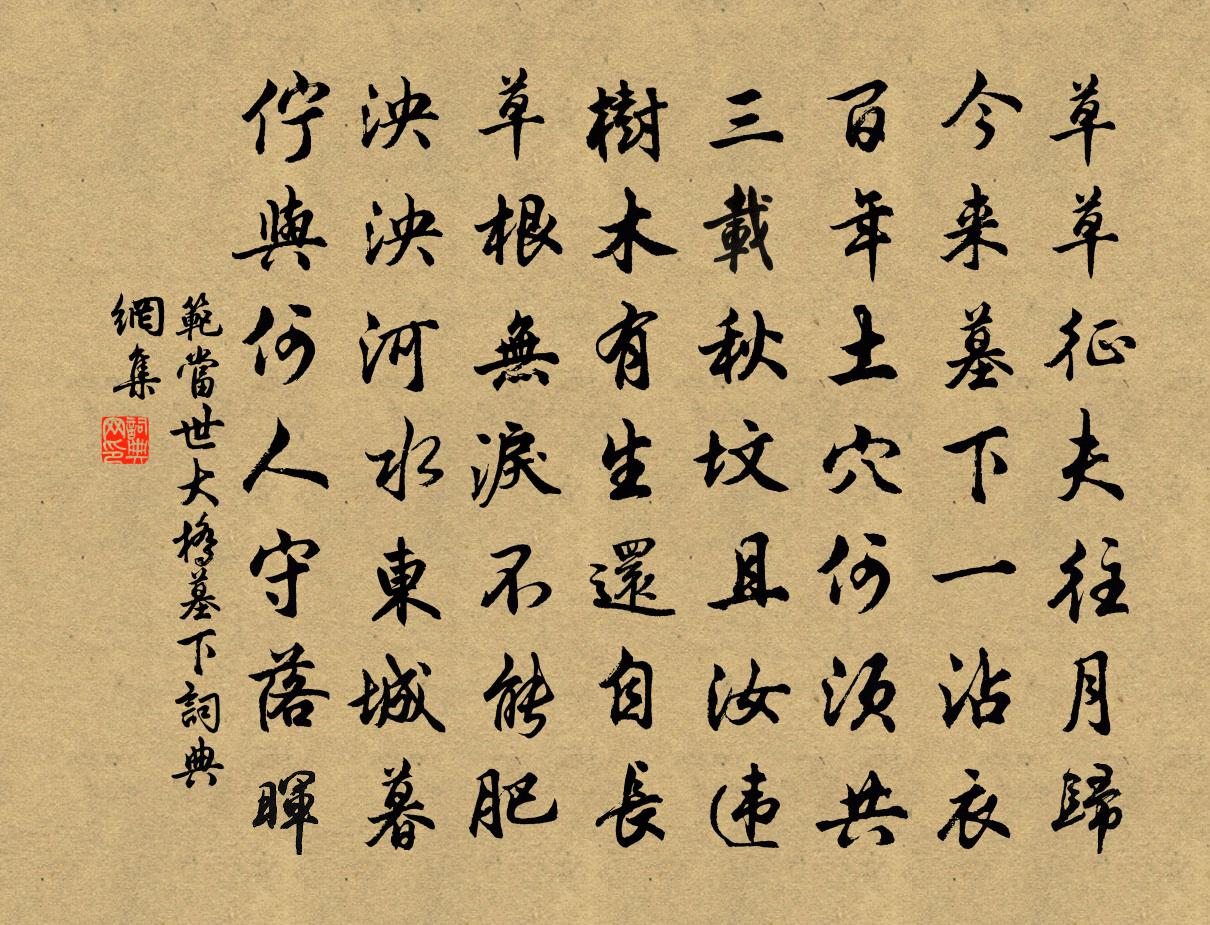 草草征夫往月歸
今来墓下一沾衣
百年土穴何須共
三載秋墳且汝違
樹木有生還自長
草根無淚不能肥
泱泱河水東城暮
佇與何人守落暉
範當世大橋墓下詞典
網集
詞典
网印